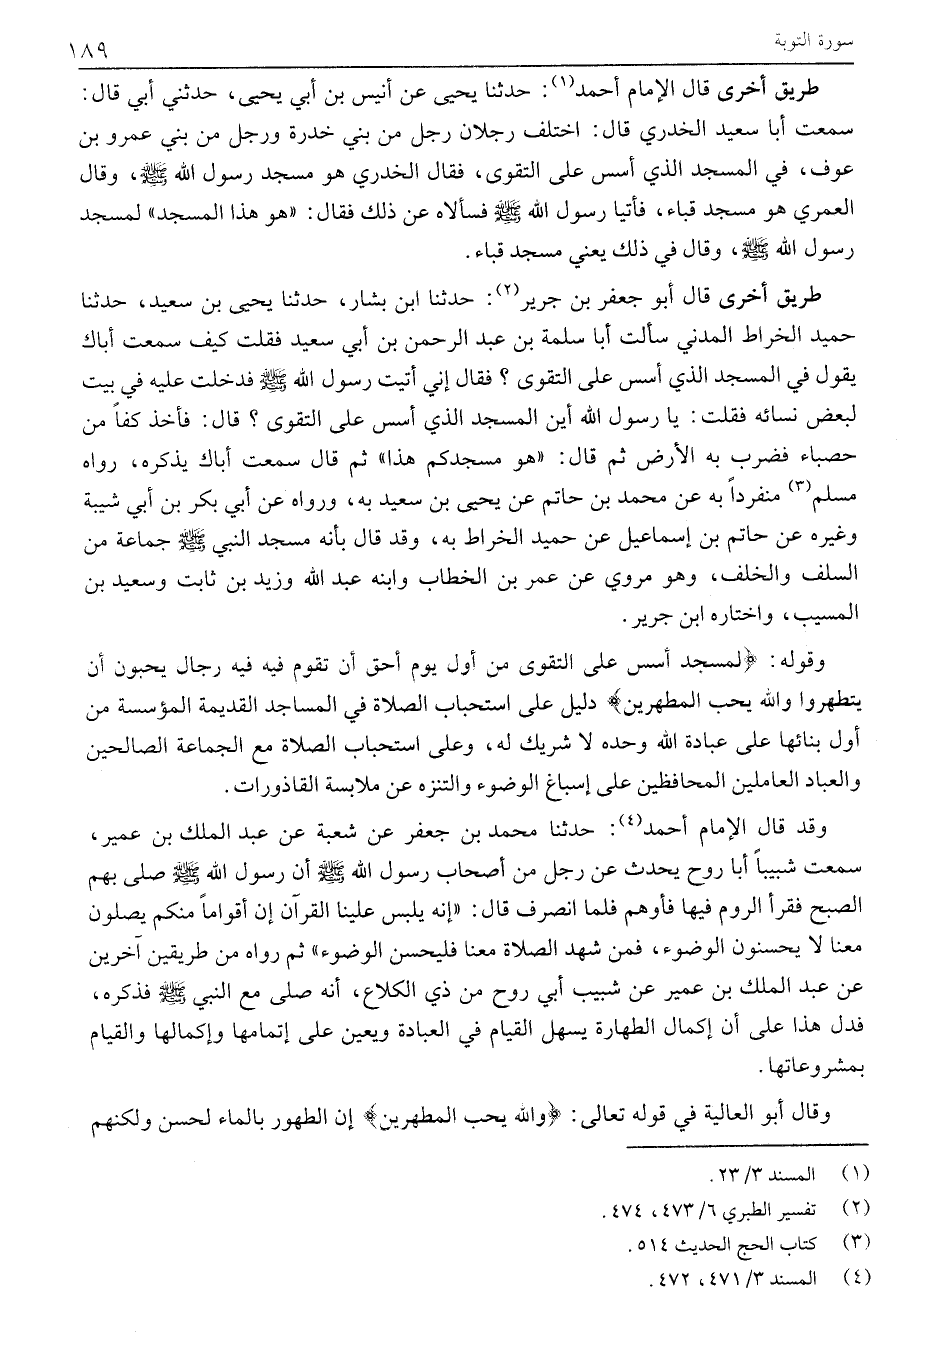 سورة التوبة
١٨٩
طريق أخرى قال الإمام أحمد(١): حدثنا يحيى عن أنيس بن أبي يحيى، حدثني أبي قال:
سمعت أبا سعيد الخدري قال: اختلف رجلان رجل من بني خدرة ورجل من بني عمرو بن
عوف، في المسجد الذي أسس على التقوى، فقال الخدري هو مسجد رسول الله ﷺ، وقال
العمري هو مسجد قباء، فأتيا رسول الله ﷺ فسألاه عن ذلك فقال: «هو هذا المسجد» لمسجد
رسول الله ﷺ، وقال في ذلك يعني مسجد قباء.
طريق أخرى قال أبو جعفر بن جرير(٢): حدثنا ابن بشار، حدثنا يحيى بن سعيد، حدثنا
حميد الخراط المدني سألت أبا سلمة بن عبد الرحمن بن أبي سعيد فقلت كيف سمعت أباك
يقول في المسجد الذي أسس على التقوى؟ فقال إني أتيت رسول الله ﷺ فدخلت عليه في بيت
لبعض نسائه فقلت: يا رسول الله أين المسجد الذي أسس على التقوى؟ قال: فأخذ كفاً من
حصباء فضرب به الأرض ثم قال: «هو مسجدكم هذا» ثم قال سمعت أباك يذكره، رواه
مسلم(٣) منفرداً به عن محمد بن حاتم عن يحيى بن سعيد به، ورواه عن أبي بكر بن أبي شيبة
وغيره عن حاتم بن إسماعيل عن حميد الخراط به، وقد قال بأنه مسجد النبي ﷺ جماعة من
السلف والخلف، وهو مروي عن عمر بن الخطاب وابنه عبد الله وزيد بن ثابت وسعيد بن
المسيب، واختاره ابن جرير.
وقوله: ﴿لمسجد أسس على التقوى من أول يوم أحق أن تقوم فيه فيه رجال يحبون أن
يتطهروا والله يحب المطهرين﴾ دليل على استحباب الصلاة في المساجد القديمة المؤسسة من
أول بنائها على عبادة الله وحده لا شريك له، وعلى استحباب الصلاة مع الجماعة الصالحين
والعباد العاملين المحافظين على إسباغ الوضوء والتنزه عن ملابسة القاذورات.
وقد قال الإمام أحمد(٤): حدثنا محمد بن جعفر عن شعبة عن عبد الملك بن عمير،
سمعت شبيباً أبا روح يحدث عن رجل من أصحاب رسول الله ﷺ أن رسول الله ﷺ صلى بهم
الصبح فقرأ الروم فيها فأوهم فلما انصرف قال: «إنه يلبس علينا القرآن إن أقواماً منكم يصلون
معنا لا يحسنون الوضوء، فمن شهد الصلاة معنا فليحسن الوضوء» ثم رواه من طريقين آخرين
عن عبد الملك بن عمير عن شبيب أبي روح من ذي الكلاع، أنه صلى مع النبي ﷺ فذكره،
فدل هذا على أن إكمال الطهارة يسهل القيام في العبادة ويعين على إتمامها وإكمالها والقيام
بمشروعاتها.
وقال أبو العالية في قوله تعالى: ﴿والله يحب المطهرين﴾ إن الطهور بالماء لحسن ولكنهم
(١) المسند ٣/ ٢٣.
(٢) تفسير الطبري ٦/ ٤٧٣، ٤٧٤.
(٣) كتاب الحج الحديث ٥١٤.
(٤) المسند ٣/ ٤٧١، ٤٧٢.